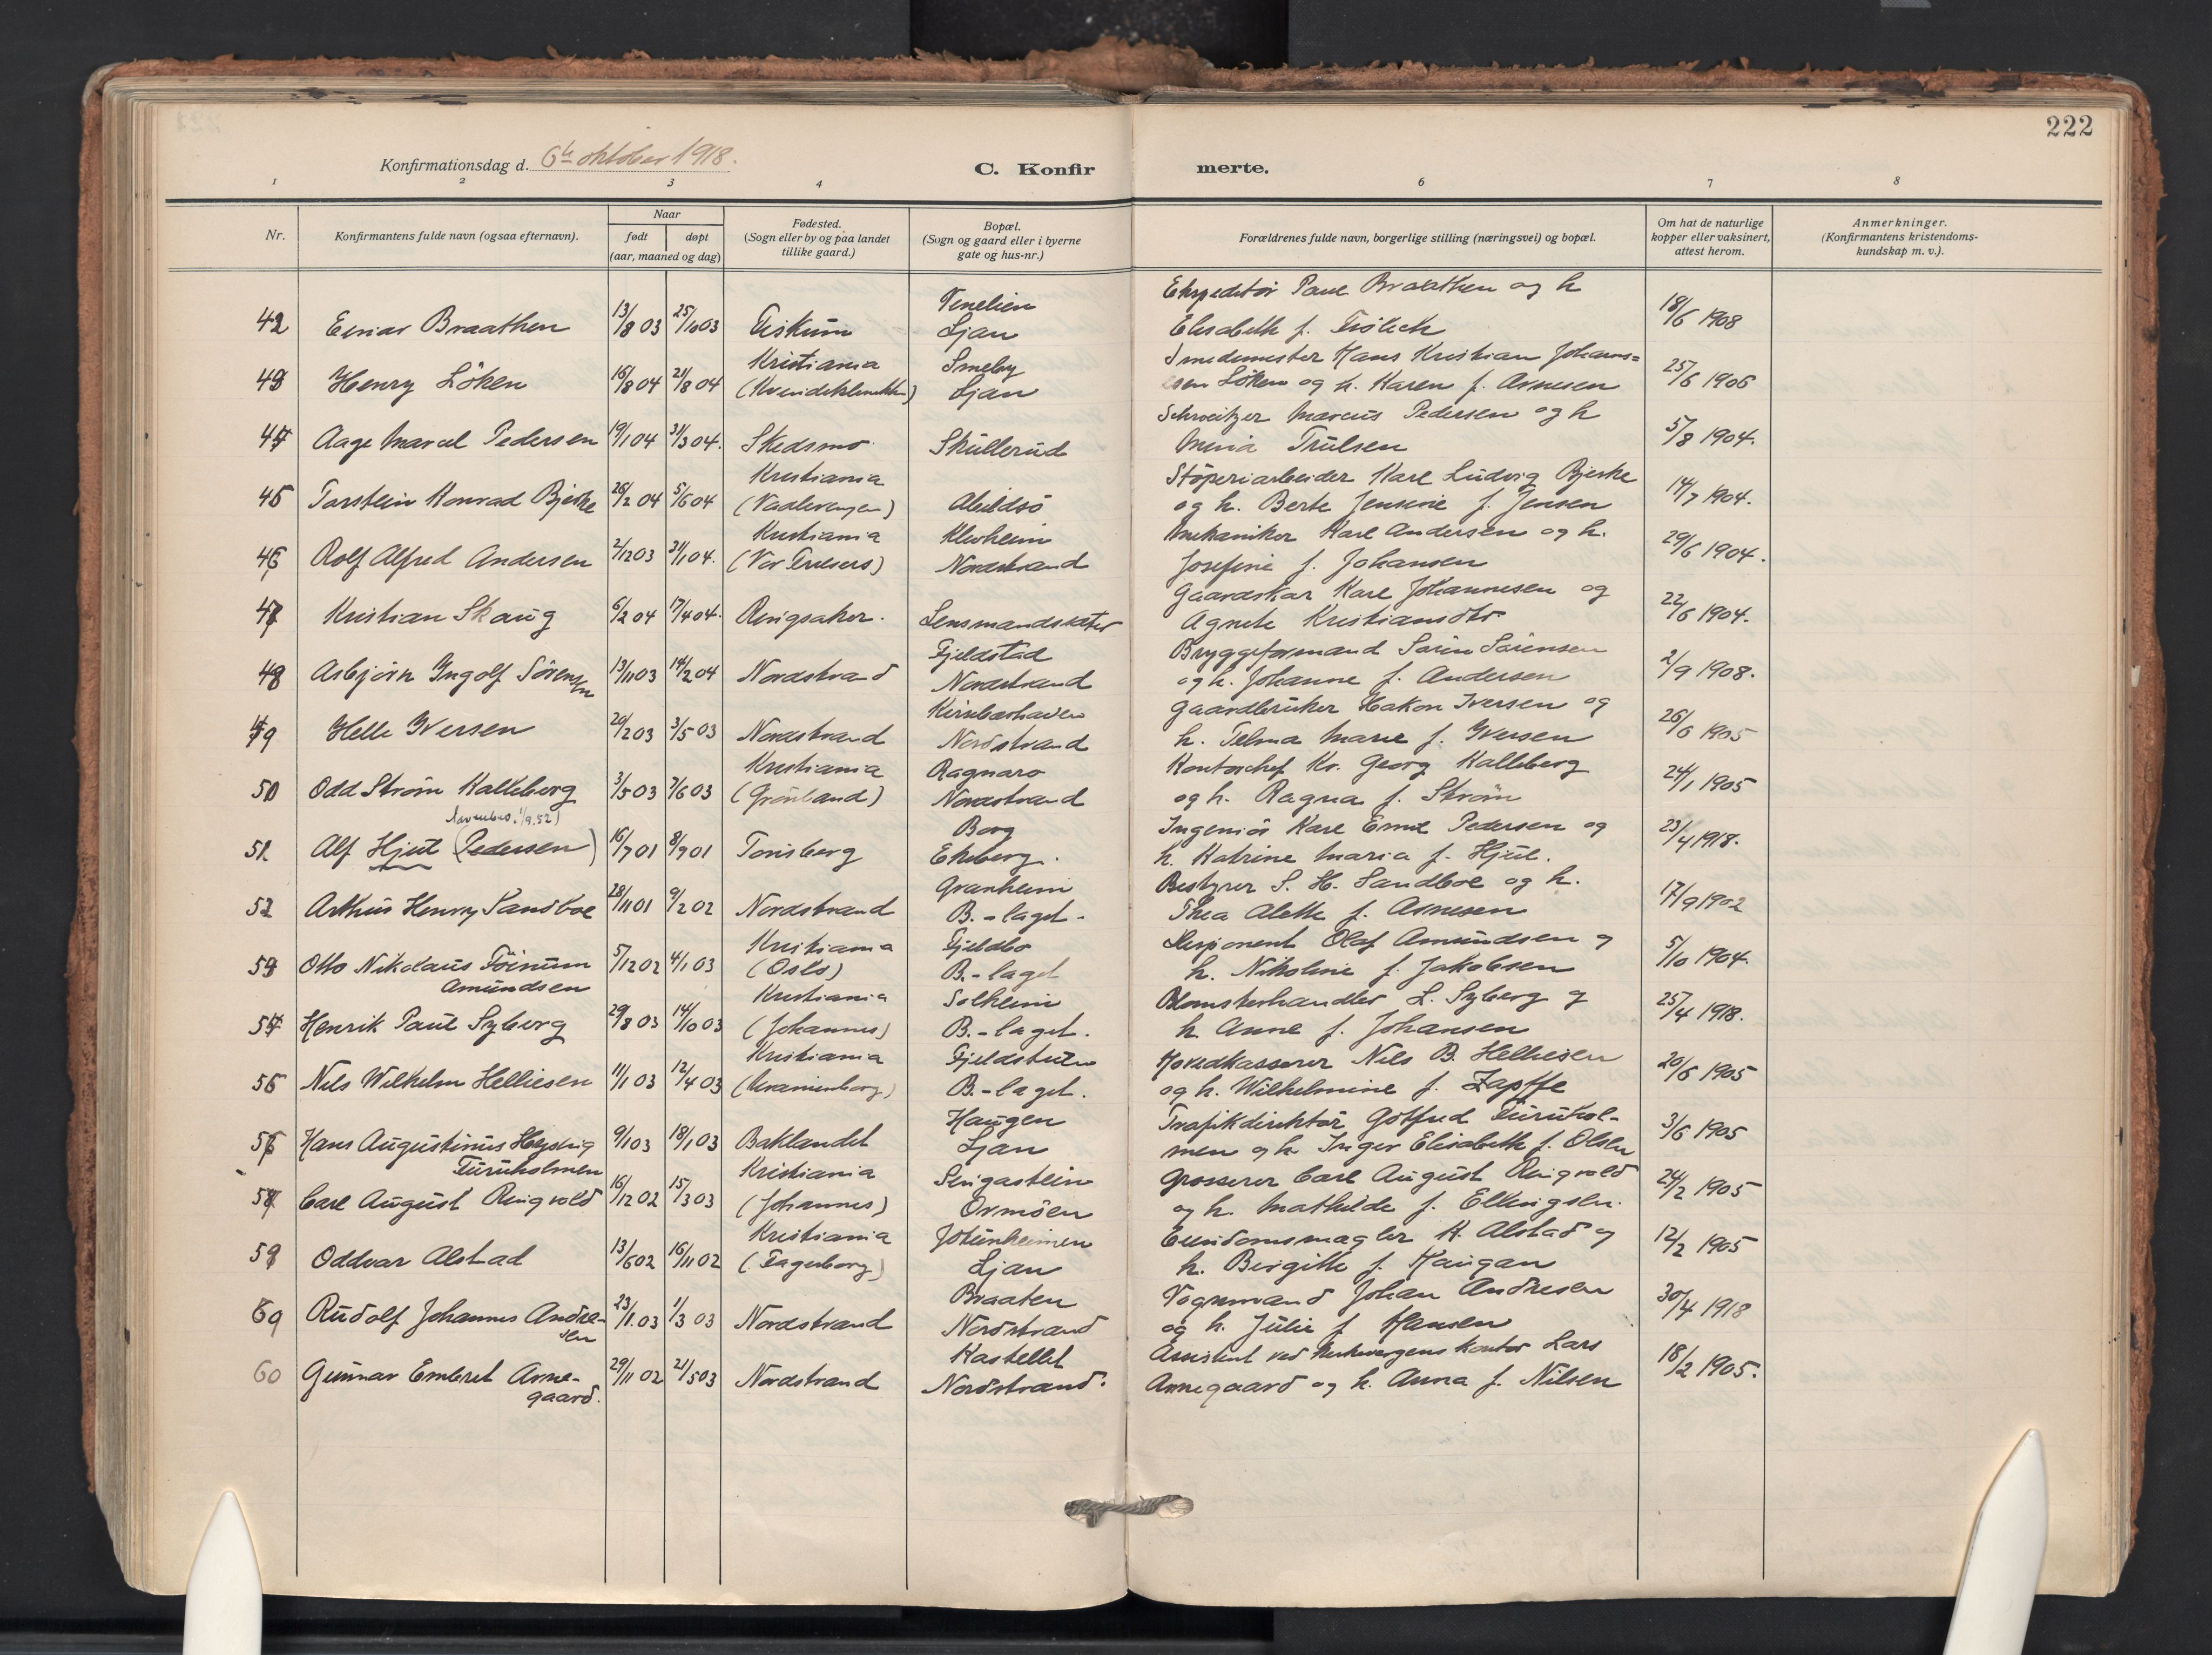 222
Konfirmationsdag d. 6te oktober 1918.
C. Konfir merte.
1 2 3 4 6 7 8
Nr.
Konfirmantens fulde navn (ogsaa efternavn).
Naar
født døpt
(aar, maaned og dag)
Fødested.
(Sogn eller by og paa landet
tillike gaard.)
Bopæl.
(Sogn og gaard eller i byerne
gate og hus-nr.)
Forældrenes fulde navn, borgerlige stilling (næringsvei) og bopæl.
Om hat de naturlige
kopper eller vaksinert,
attest herom.
Anmerkninger.
(Konfirmantens kristendoms-
kundskap m. v.).
Venelien Ekspeditør Paul Braathen og h
42 Einar Braathen 13/8 03 25/10 03 Fiskum Ljan Elisabeth f. 18/6 1908
Kristiania Smeby Smedemester Hans Kristian Johann=
43 Henry Löken 16/8 04 21/8 04 (Kvindeklinikken) Ljan sen Löken og h. Karen f. Arnesen 25/6 1906
Schweitzer Marcus Pedersen og h
44 Aage Marcel Pedersen 19/1 04 31/3 04. Skedsmo Skullerud Trulsen 5/8 1904.
Kristiania Støperiarbeider Karl Ludvig Bjerke
45 Torstein Konrad Bjerke 26/2 04 5/6 04 (Vaalerengen) Abildsö og h. Berte Jensine f. Jensen 14/7 1904.
Kristiania Klevheim Mekaniker Karl Andersen og h.
46 Rolf Alfred Andersen 2/12 03 31/1 04. (Vor Frelsers) Nordstrand Josefine f. Johansen 29/6 1904.
Gaardskar Karl Johannesen og
47 Kristian Skaug 6/2 04 17/4 04. Ringsaker. Lensmandsæter Agnete Kristiansdtr 22/6 1904.
Fjeldstad Bryggeformand Sören Sörensen
48 Asbjörn Yngolf Sörensen 13/11 03 14/2 04 Nordstrand Nordstrand og h. Johanne f. Andersen 2/9 1908.
Kirsebærhaven Gaardbruker Hakon Iversen og
49 Helle Iversen 20/2 03 3/5 03 Nordstrand Nordstrand h. Telma Marie f. Iversen 26/6 1905
Kristiania Ragnaro Kontorchef Kr. Georg Kalleberg
50 Odd Ström Kalleberg 3/5 03 7/6 03 (Grönland) Nordstrand og h. Ragna f. Ström 24/1 1905
Borg Ingeniör Karl Emil Pedersen og
51. Alf Hjul (Pedersen) 16/7 01 8/9 01 Tönsberg Ekeberg. h. Katrine Maria f. Hjul. 23/4 1918.
Granheim Bestyrer S. H. Sandboe og h.
52 Arthur Henry Sandboe 28/11 01 9/2 02 Nordstrand B.-laget. Thea Alette f. Arnesen 17/9 1902
Kristiania Fjeldbo Disponent Olaf Amundsen og
53 Otto Nikolaus Föinum 5/12 02 4/1 03 (Oslo) B.-laget h. Nikoline f. Jakobsen 5/10 1904.
Amundsen Kristiania Solheim Blomsterhandler L. Syberg og
54 Henrik Paul Syberg 29/8 03 14/10 03 (Johannes) B.-laget. h. Anne f. Johansen 25/4 1918.
Kristiania Fjeldstuen Hovedkasserer Nils B. Helliesen
55 Nils Wilhelm Helliesen 11/1 03 12/4 03 (Uranienborg) B.-laget. og h. Wilhelmine f. Zapffe 20/6 1905
Haugen Trafikdirektör Gotfred Furuhol-
56 Hans Augustinus 9/1 03 18/1 03 Baklandet Ljan men og h. Inger Elisabeth f. Olsen 3/6 1905
Furuholmen Kristiania Grosserer Carl August Ringvold
57 Carl August Ringvold 16/12 02 15/3 03 (Johannes) Ormöen og h. Mathilde f. Ellingsen. 24/2 1905
Kristiania Jotunheimen Eiendomsmægler H. Alstad og
58 Oddvar Alstad 13/6 02 16/11 02 (Fagerborg) Ljan h. Birgitte f. Haugan 12/2 1905
Braaten Vognmand Johan Andresen
59 Rudolf Johannes Andre- 23/1.03 1/3 03 Nordstrand Nordstrand og h. Julie f Hansen 30/4 1918
sen Kastellet Assistent ved kontor Lars
60 Gunnar Embret Arne- 29/11 02 21/5 03 Nordstrand Nordstrand. Arnegaard og h. Anna f. Nilsen 18/2 1905.
gaard.